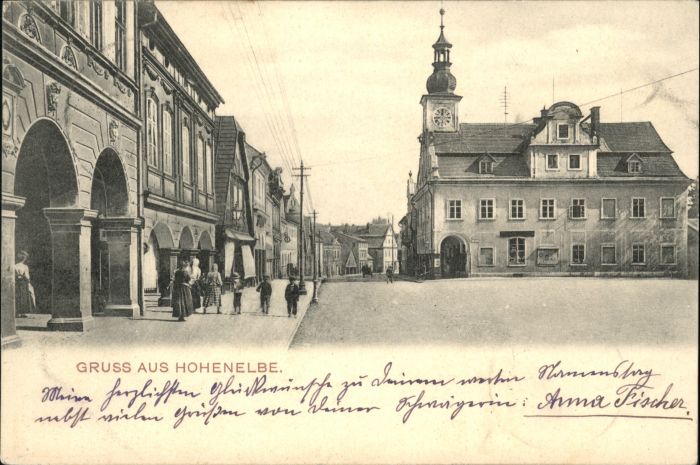 GRUSS AUS HOHENELBE.
Meine herzlichsten Glückwünsche zu Deinem werten Namenstag
nebst vielen Grüßen von Deiner Schwägerin: Anna Fischer.